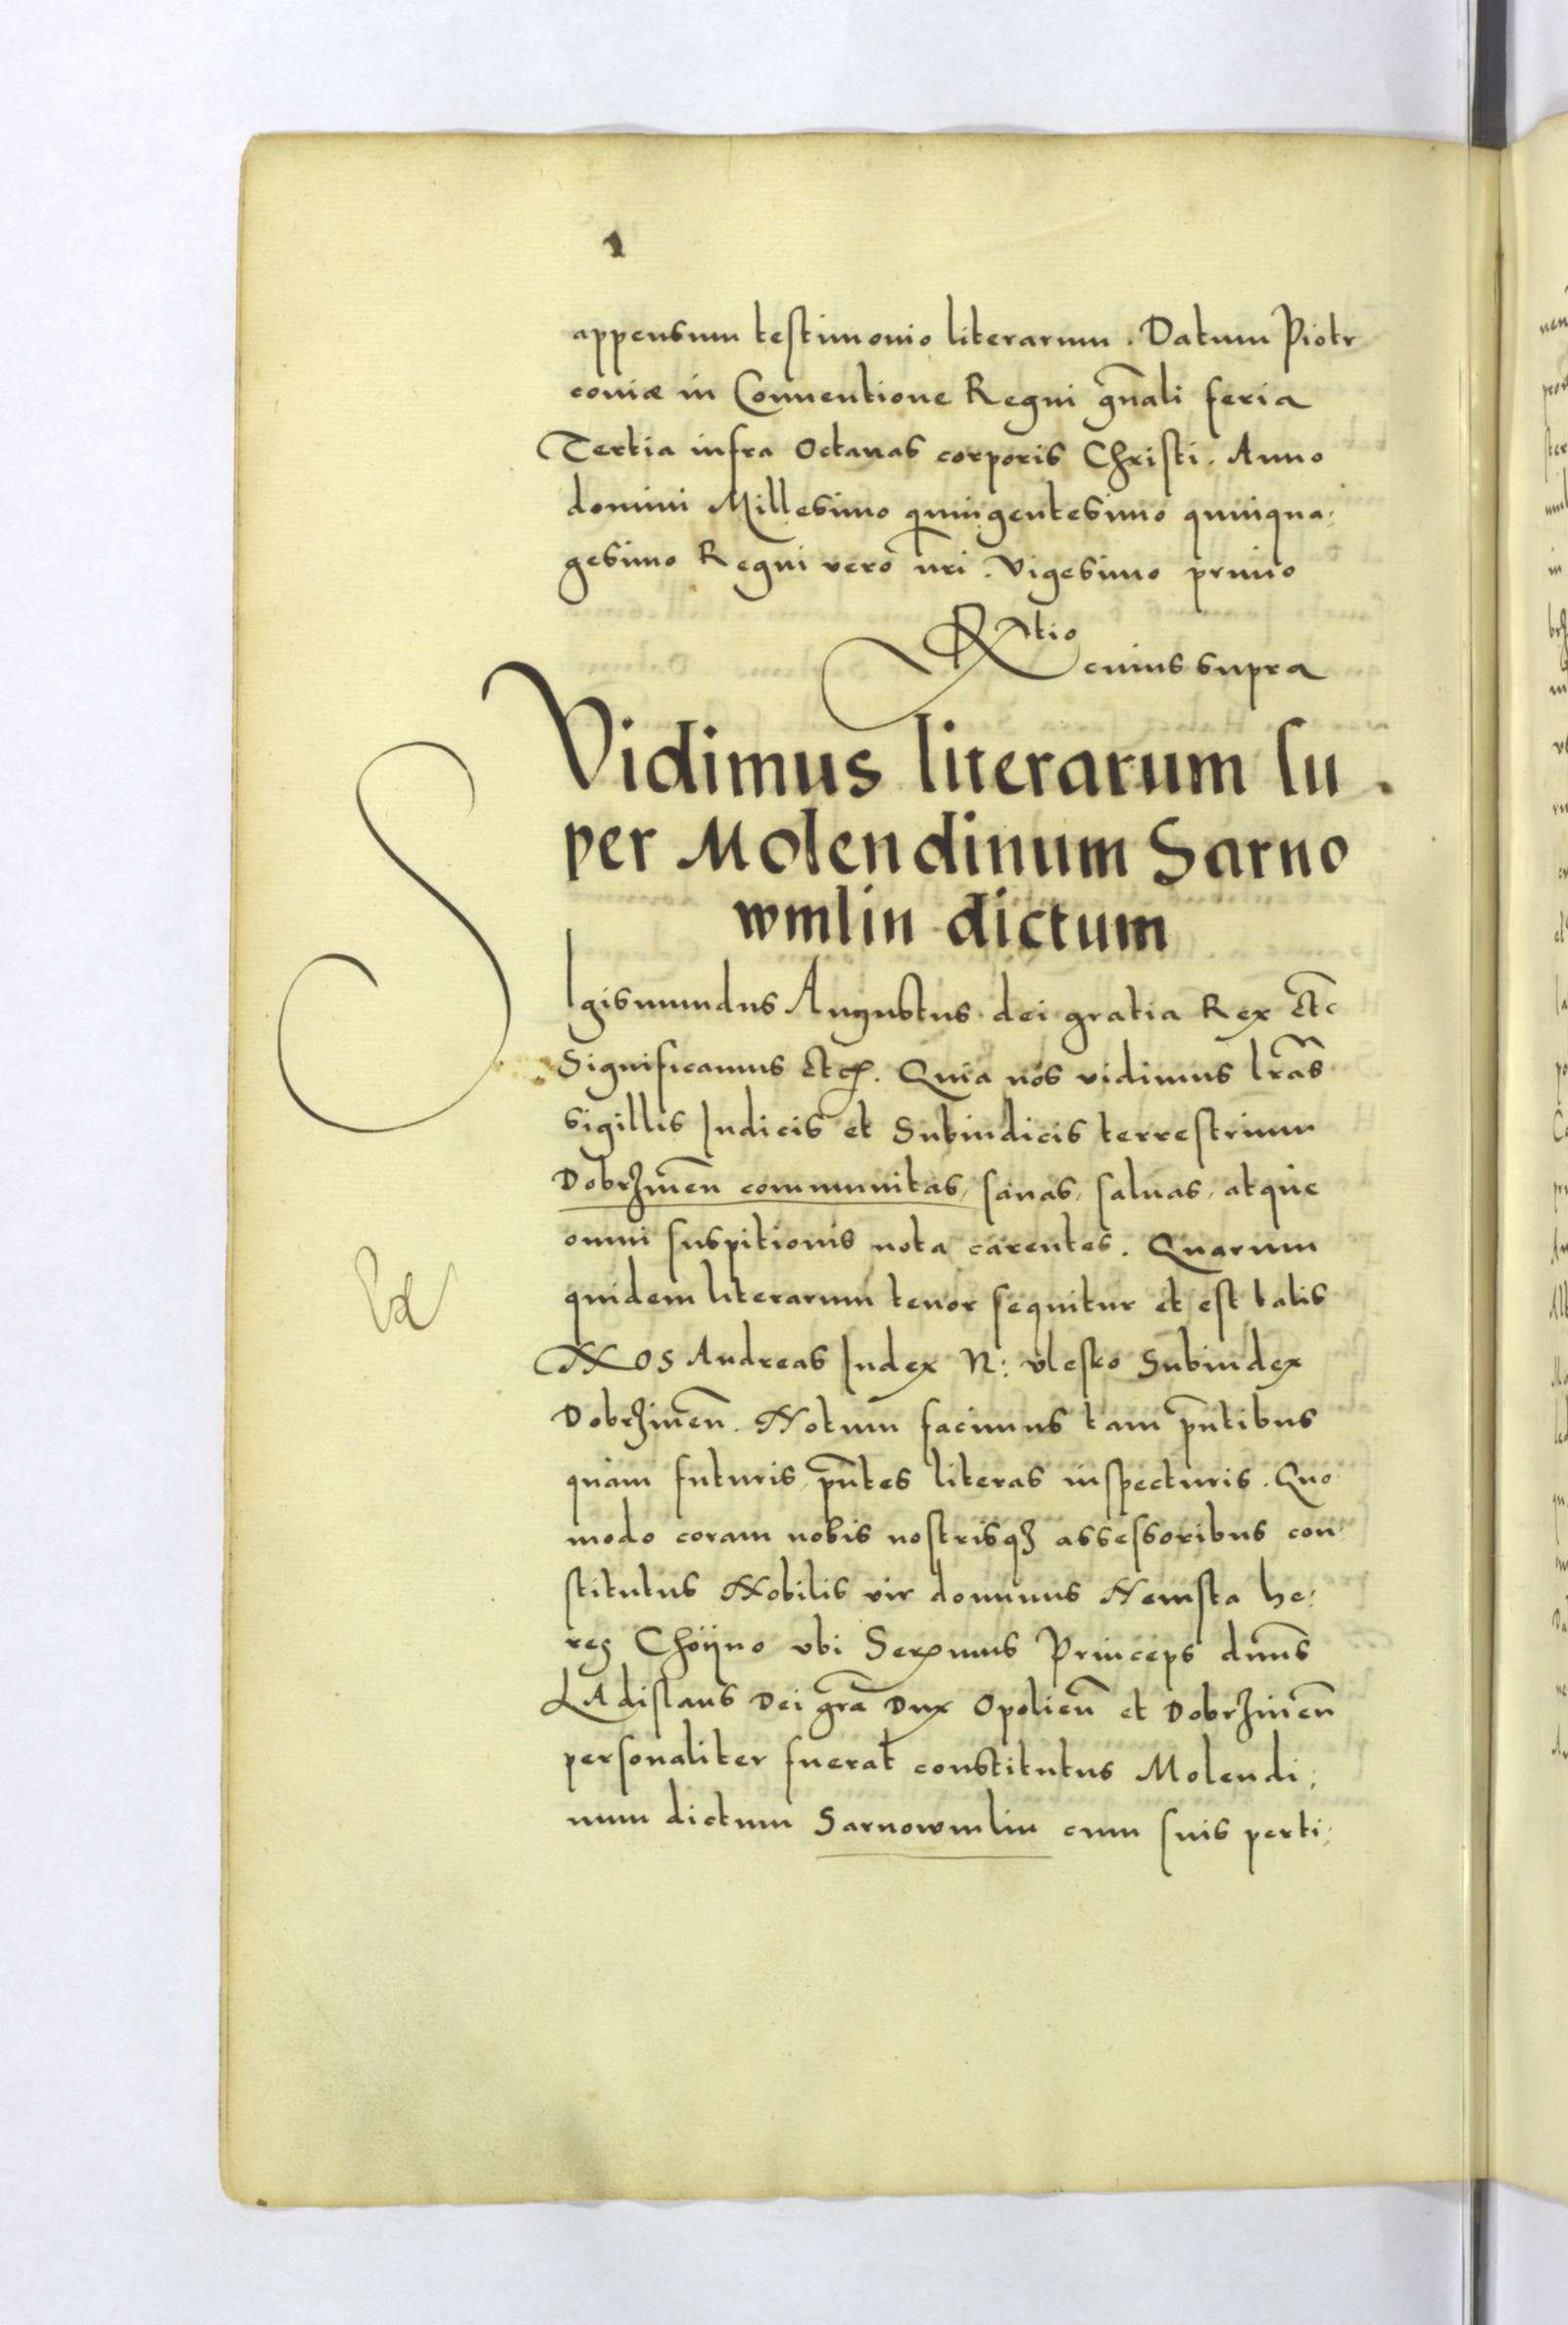 appensum testimonio literarum. Datum Piotr
coviæ in Conventione Regni gn̄ali feria
Tertia infra Octavas corporis Christi. Anno
domini Millesimo quingentesimo quinqua:
gesimo Regni vero nr̄i. Vigesimo primo
Rtio
cuius supra
Vidimus literarum su.
per Molendinum Sarno
wmlin dictum
SIgismundus Augustus dei gratia Rex etc
Significamus etc. Quia nos vidimus lr̄as
sigillis Iudicis et Subiudicis terrestrium
Dobrzinen̄ communitas, sanas, salvas, atque
omni suspitionis nota carentes. Quarum
quidem literarum tenor sequitur et est talis
NOS Andreas Iudex N: vlesko Subiudex
Dobrzinen̄. Notum facimus tam pn̄tibus
quam futuris pn̄tes literas inspecturis. Quo
modo coram nobis nostrisqȝ assessoribus con:
stitutus Nobilis vir dominus Nemsta he:
res Choÿno vbi Serenus Princeps dnns̄
LAdislaus Dei gr̄a Dux Opolien̄ et Dobrzinen̄
personaliter fuerat constitutus Molendi:
num dictum Sarnowmlin cum suis perti: